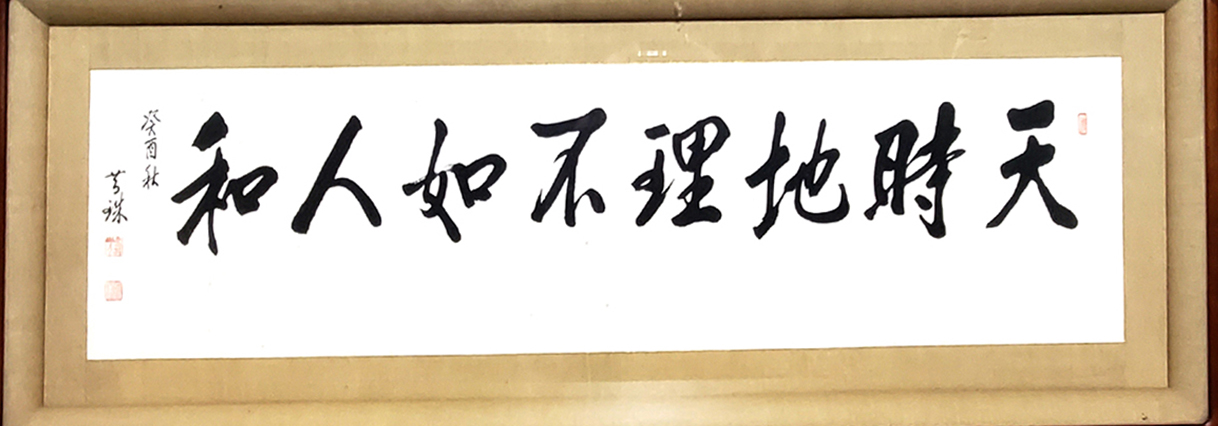 天時地理不如人和
癸酉秋